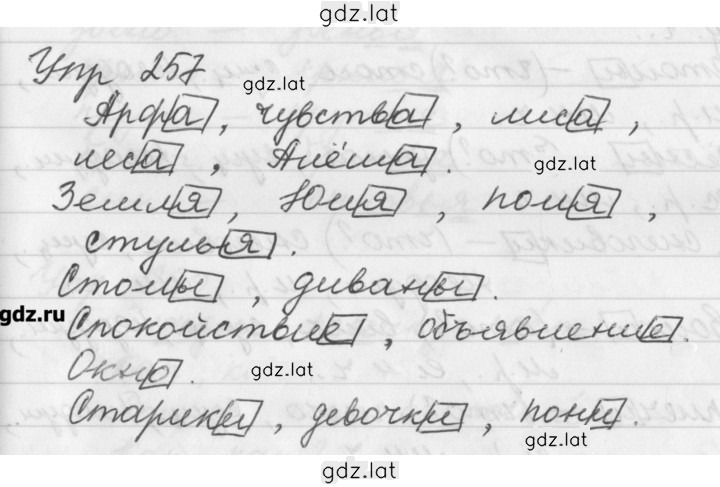 gdz.lat
Упр 257
gdz.lat
Арфа, чувства, лиса,
леса, Алёша.
gdz.lat
Земля, Юля, поля,
стулья.
Столы, диваны.
gdz.ru
Спокойствие, объявление.
Окно.
gdz.lat
Старики, девочки, пони.
gdz.lat
gdz.lat